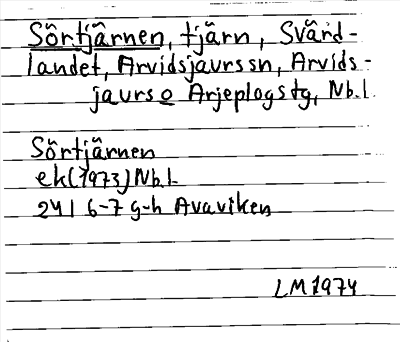 Sörtjärnen, tjärn, Svärd-
landet, Arvidsjaurssn, Arvids-
jaurs o Arjeplogs tg, Nb.l.
Sörtjärnen
ek(1973)Nb.l.
24I 6-7 g-h Avaviken
LM1974